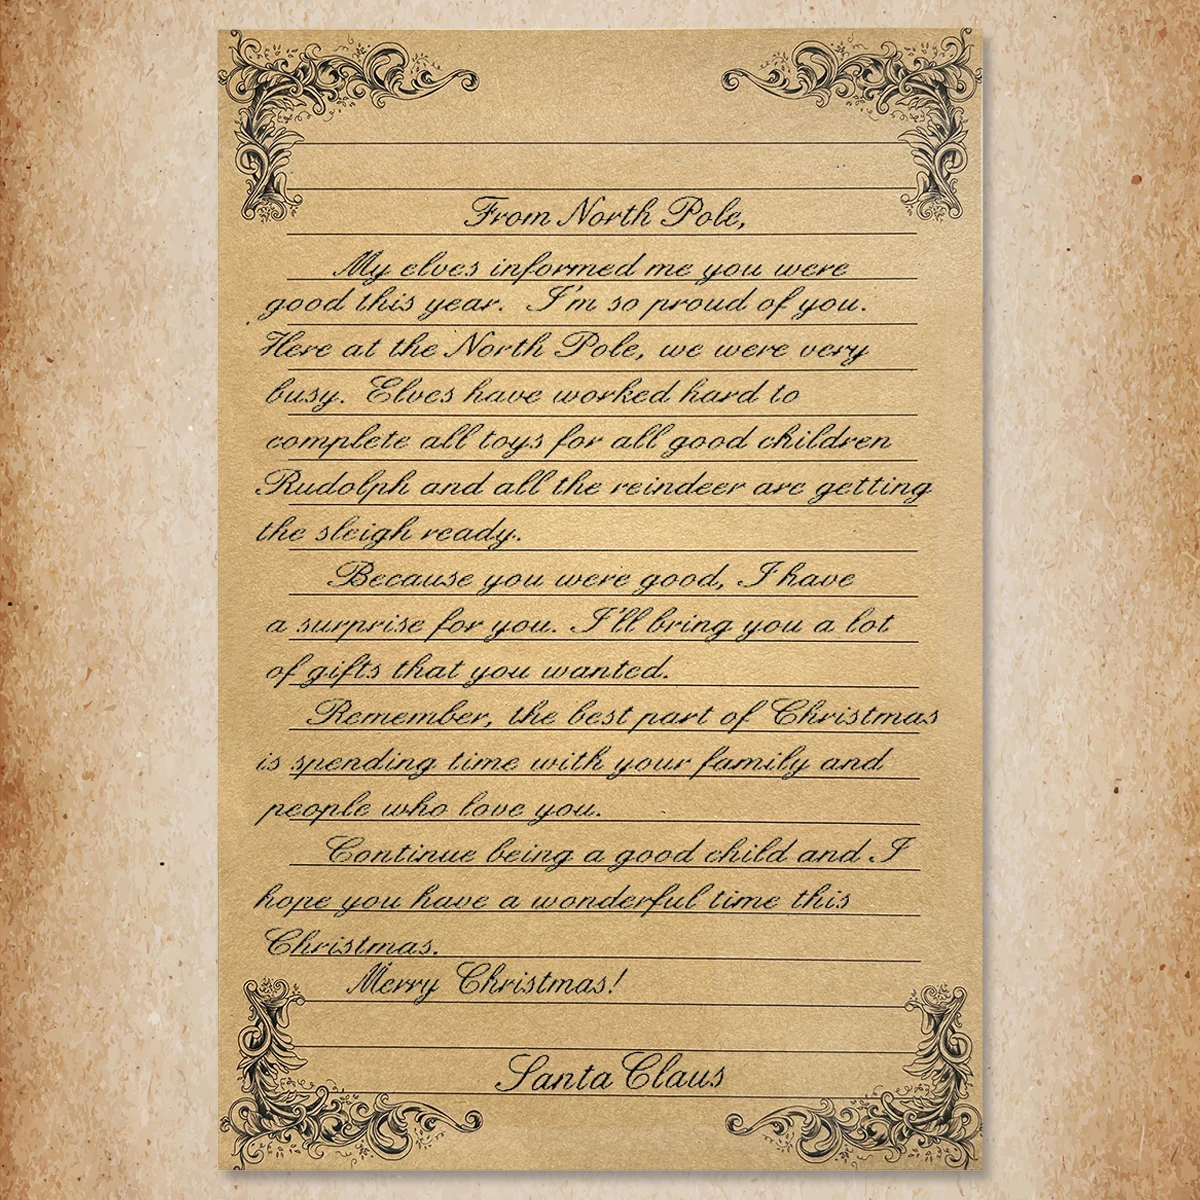 From North Pole,
My elves informed me you were
good this year. I'm so proud of you.
Here at the North Pole, we were very
busy. Elves have worked hard to
complete all toys for all good children
Rudolph and all the reindeer are getting
the sleigh ready.
Because you were good, I have
a surprise for you. I'll bring you a lot
of gifts that you wanted.
Remember, the best part of Christmas
is spending time with your family and
people who love you.
Continue being a good child and I
hope you have a wonderful time this
Christmas.
Merry Christmas!
Santa Claus